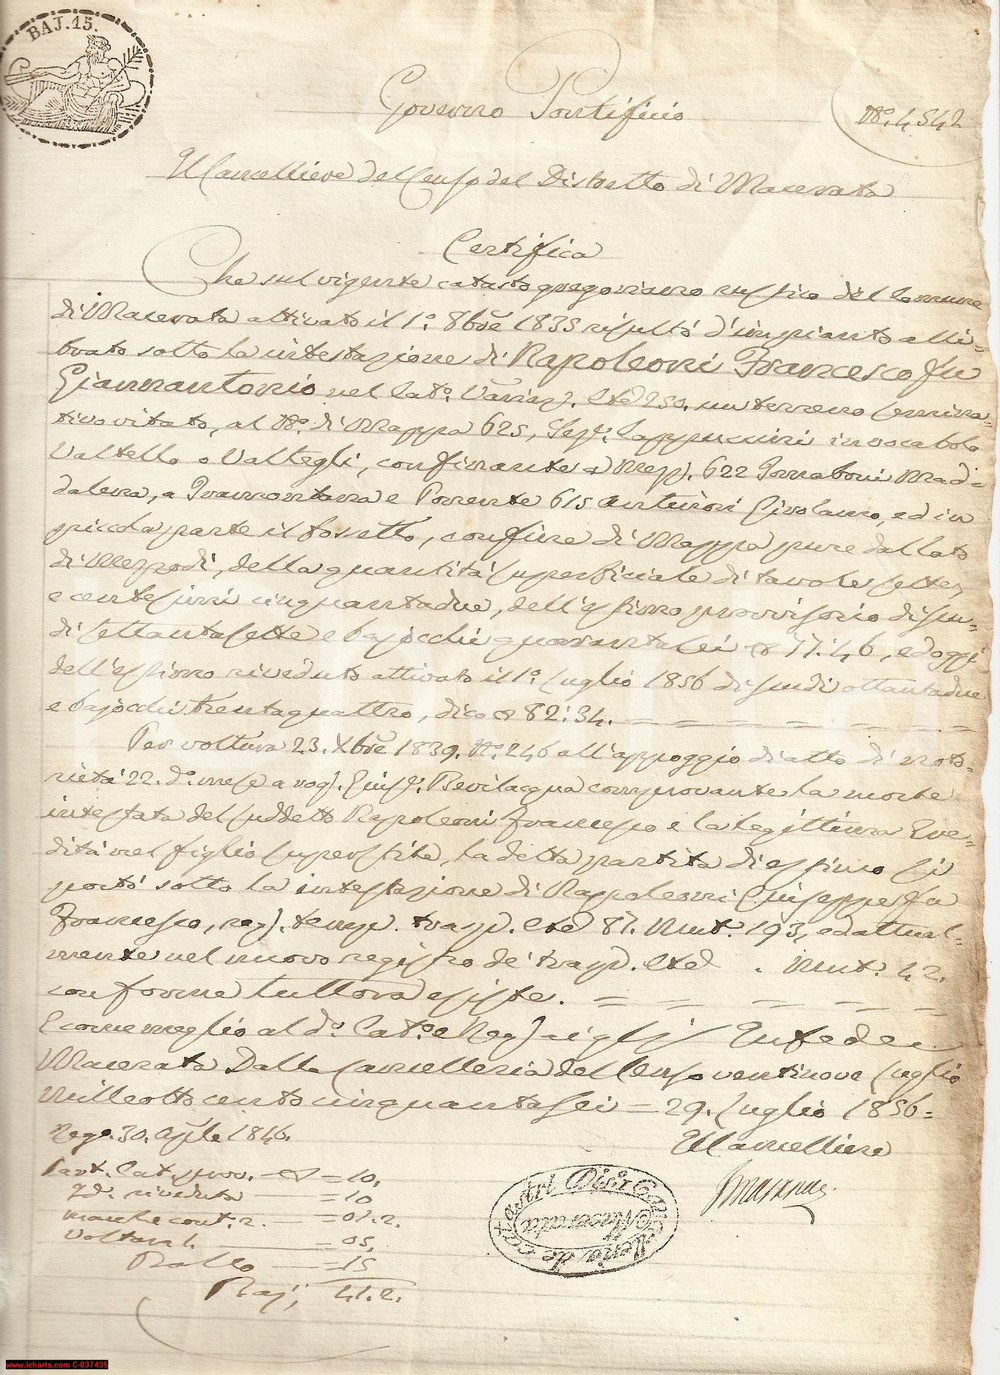 BAJ. 15.
Governo Pontificio
N.º 4542
Il Cancelliere del Censo del Distretto di Macerata
Certifica
Che sul vigente catasto gregoriano rustico del Comune
di Macerata attivato il 1º. 8bre 1835 risultò d'impianto alli-
brato sotto la intestazione di Napoleoni Francesco fu
Giannantonio nel Cat.º 250. un terreno semina-
tivo vitato, al Nº. di Mappa 625, Cappuccini in vocabolo
Valtello o Valtegli, confinante a 622 Mad-
dalena, a Tramontana e Ponente 615 Antinori Girolamo, ed in
piccola parte il fossetto, confine di Mappa pure dal lato
di Mezzodì, della quantità superficiale di tavole sette,
e centesimi cinquantadue, dell'estimo provvisorio di scu-
di settantasette e bajocchi quarantasei 77:46, ed oggi
dell'estimo riveduto attivato il 1º. Luglio 1856 di scudi ottantadue
e bajocchi trentaquattro, dico 82:34.
Per voltura 23. Xbre 1839. Nº. 246 all'appoggio di atto di noto-
rietà 22. dº. mese a rog. Giusp. Bevilacqua comprovante la morte
intestata del suddetto Napoleoni Francesco e la legittima Ere-
dità nel figlio superstite, la detta partita di estimo si
portò sotto la intestazione di Napoleoni Giuseppe fu
Francesco, reg. temp. trasp. 87. Nut. 193, ed attual-
mente nel nuovo registro de' trasp. Nut. 42.
conforme tuttora esiste.
E come meglio al dº. Cat.º e Reg. In fede
Macerata Dalla Cancelleria del Censo ventinove Luglio
Milleottocentocinquantasei = 29. Luglio 1856=
Reg. 30. Aple 1846.
Il Cancelliere
Part. Cat. prov. = 10.
Id. riveduta = 10
marche cont. 2. = 01.2.
Voltura 1. = 05.
Bollo = 15
Baj. 41.2.
Macerata
www.icharta.com C-037435